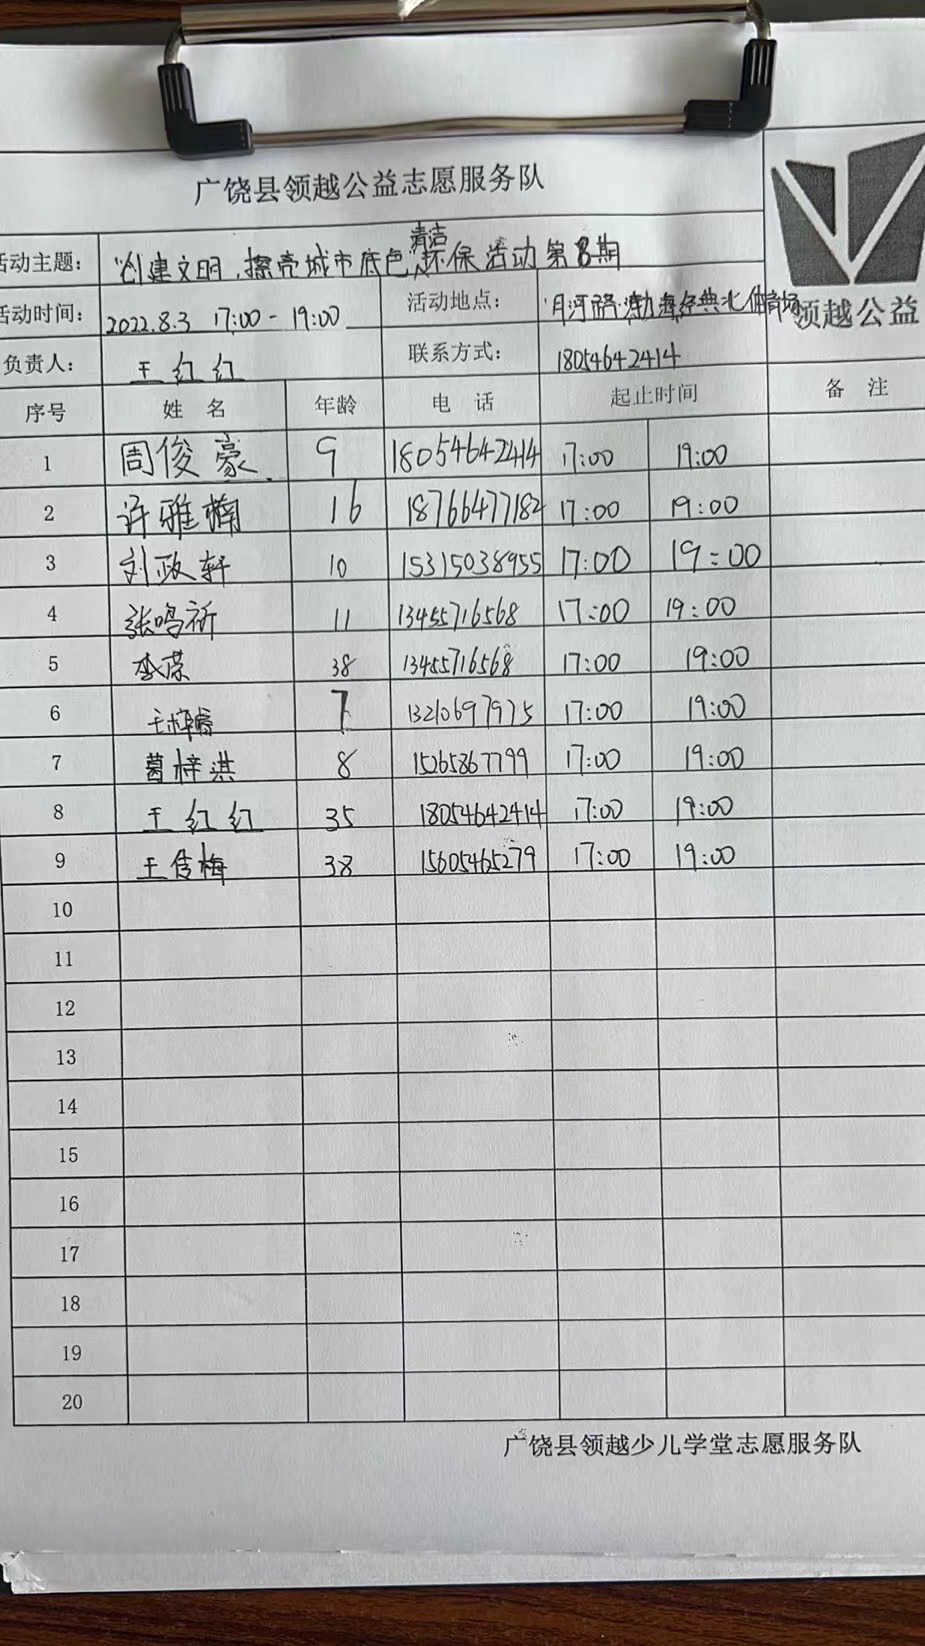 广饶县领越公益志愿服务队
活动主题： "创建文明，擦亮城市底色"清洁环保活动第8期
活动时间： 2022.8.3 17:00-19:00 活动地点： 月河路渤海经典北体育场
领越公益
负责人： 王红红 联系方式： 18054642414
序号 姓名 年龄 电话 起止时间 备注
1 周俊豪 9 18054642414 17:00 19:00
2 许雅楠 16 18766477182 17:00 19:00
3 刘政轩 10 15315038955 17:00 19:00
4 张鸣祈 11 13455716568 17:00 19:00
5 李蕊 38 13455716568 17:00 19:00
6 王梓睿 7 13210697975 17:00 19:00
7 葛梓淇 8 15265867799 17:00 19:00
8 王红红 35 18054642414 17:00 19:00
9 王信梅 38 15605465279 17:00 19:00
10
11
12
13
14
15
16
17
18
19
20
广饶县领越少儿学堂志愿服务队